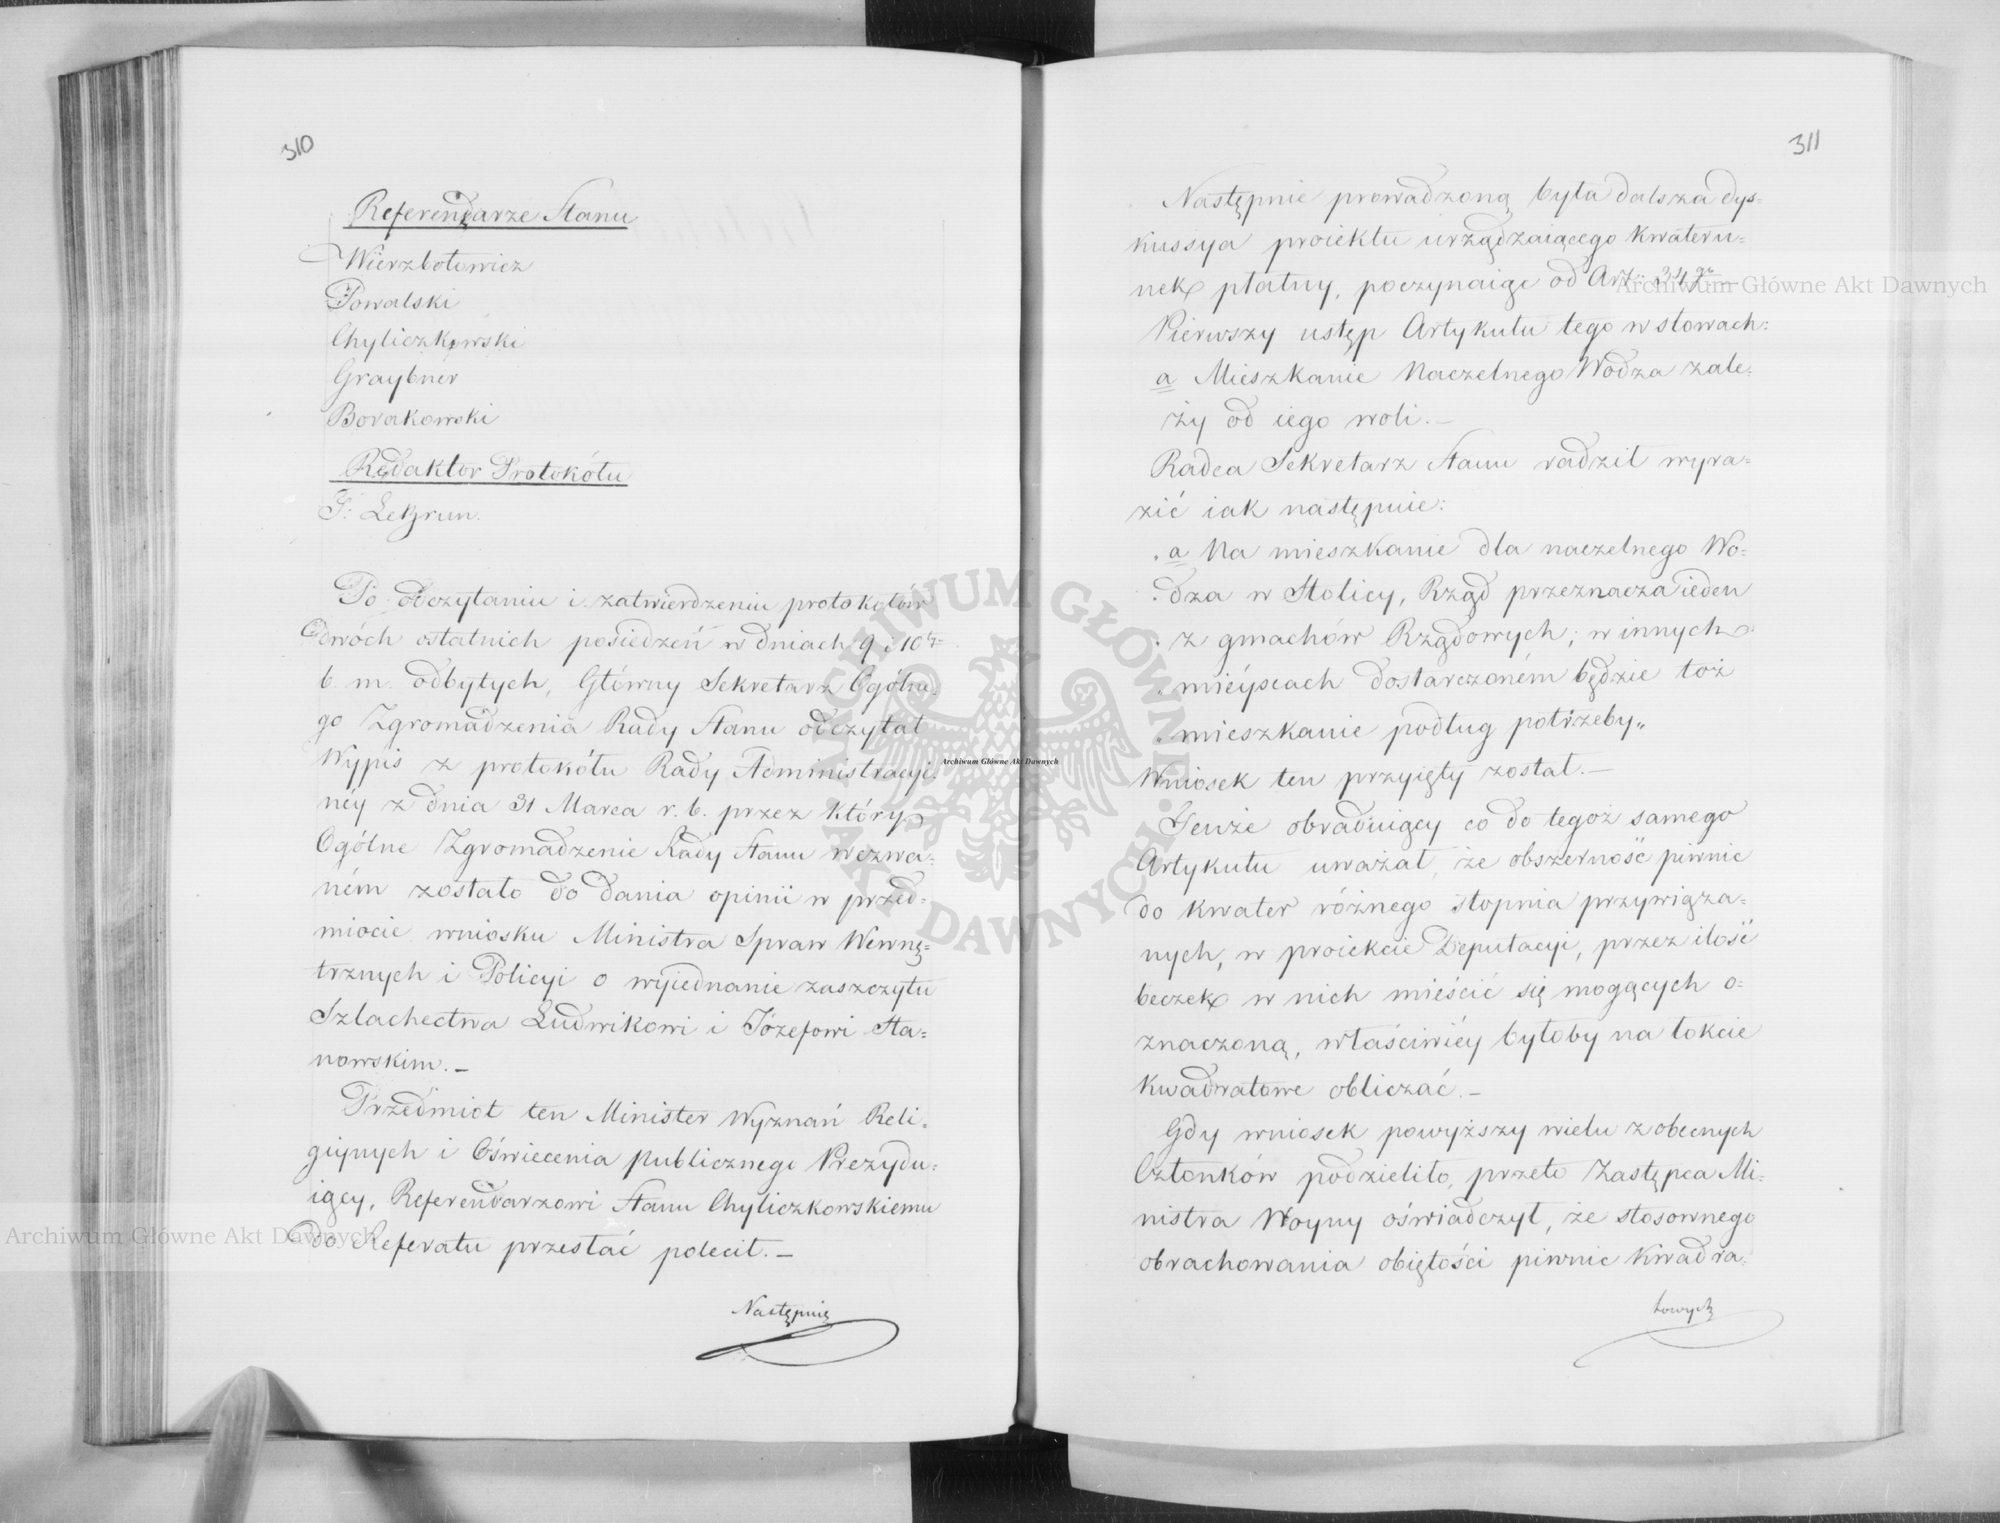 310
Referendarze Stanu
Wierzbołowicz
Powalski
Chyliczkowski
Graybner
Borakowski
Redaktor Protokółu
F: LeBrun.
Po odczytaniu i zatwierdzeniu protokołów
dwóch ostatnich posiedzeń w dniach 9 i 10
b. m. odbytych, Główny Sekretarz Ogólne-
go Zgromadzenia Rady Stanu odczytał
Wypis z protokółu Rady Administracyi-
néy z dnia 31 Marca r. b. przez który
Ogólne Zgromadzenie Rady Stanu wezwa-
ném zostało do dania opinii w przed-
miocie wniosku Ministra Spraw Wewnę-
trznych i Policyi o wyiednanie zaszczytu
Szlachectwa Ludwikowi i Józefowi Sta-
nowskim. —
Przedmiot ten Minister Wyznań Reli-
giynych i Oświecenia publicznego Prezydu-
iący, Referendarzowi Stanu Chyliczkowskiemu
do Referatu przesłać polecił. —
Następnie
311
Następnie prowadzoną była dalsza dys-
kussya proiektu urządzaiącego kwateru-
nek płatny, poczynaiąc od Art: 34go
Pierwszy ustęp Artykułu tego w słowach:
a Mieszkanie Naczelnego Wodza zale-
ży od iego woli. —
Radca Sekretarz Stanu radził wyra-
zić iak następnie:
„a Na mieszkanie dla naczelnego Wo-
„dza w Stolicy, Rząd przeznacza ieden
„z gmachów Rządowych; w innych
„mieyscach dostarczoném będzie toż
„mieszkanie podług potrzeby„
Wniosek ten przyięty został. —
Tenże obraduiący co do tegoż samego
Artykułu uważał, że obszerność piwnic
do kwater różnego stopnia przywiąza-
nych, w proiekcie Deputacyi, przez ilość
beczek w nich mieścić się mogących o-
znaczoną, właściwiéy byłoby na łokcie
kwadratowe obliczać. —
Gdy wniosek powyższy wielu z obecnych
Członków podzieliło, przeto Zastępca Mi-
nistra Woyny oświadczył, że stosownego
obrachowania obiętości piwnic kwadra-
towych
Archiwum Główne Akt Dawnych
Archiwum Główne Akt Dawnych
Archiwum Główne Akt Dawnych
ARCHIWUM GŁÓWNE AKT DAWNYCH